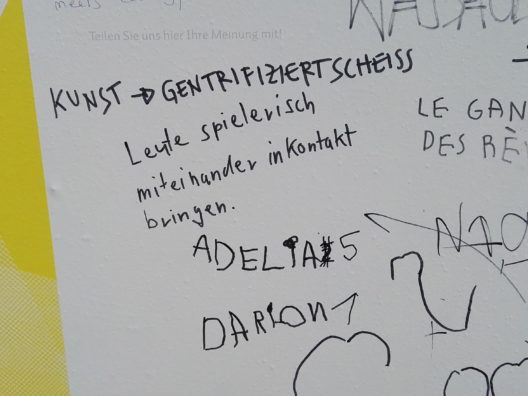 meets
Teilen Sie uns hier Ihre Meinung mit!
KUNST → GENTRIFIZIERT SCHEISS
Leute spielerisch
miteinander in Kontakt
bringen.
LE GAN
DES RÊ
ADELIA 5
DARION 1